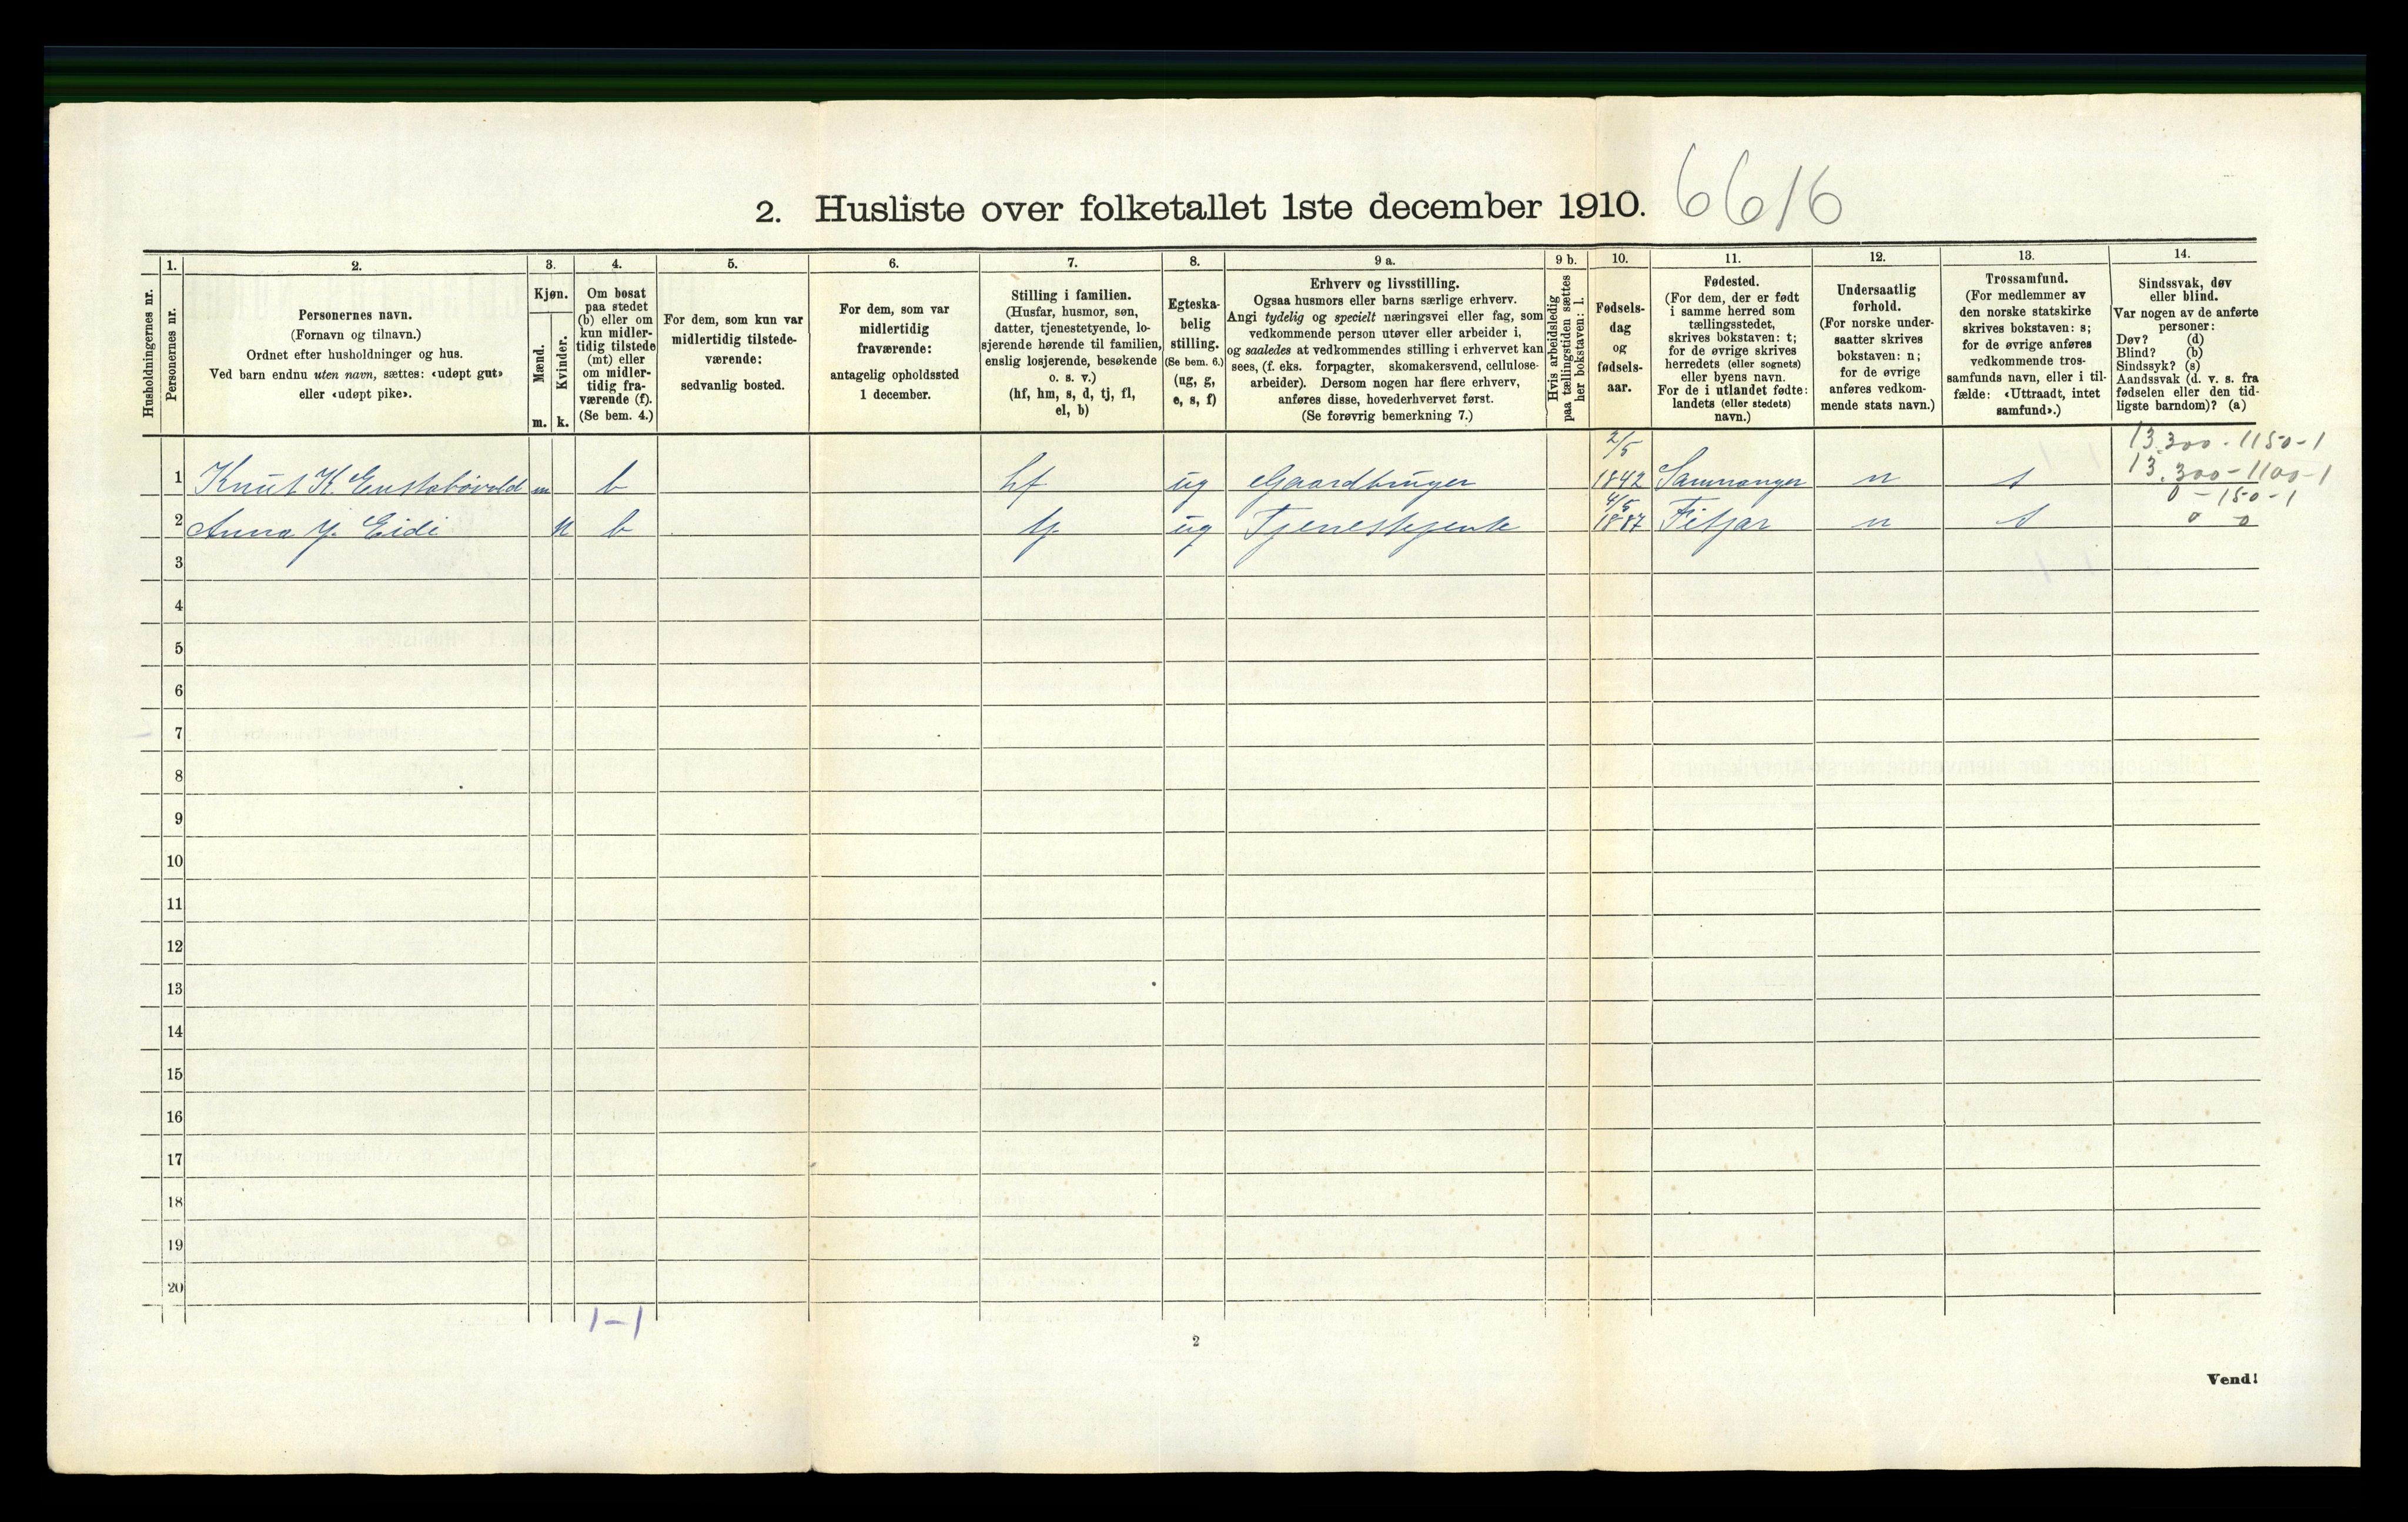 2. Husliste over folketallet 1ste december 1910. 6616
Husholdningernes nr.
1.
Personernes nr.
2.
Personernes navn.
(Fornavn og tilnavn.)
Ordnet efter husholdninger og hus.
Ved barn endnu uten navn, sættes: «udøpt gut»
eller «udøpt pike».
3.
Kjøn.
Mænd.
Kvinder.
m. k.
4.
Om bosat
paa stedet
(b) eller om
kun midler-
tidig tilstede
(mt) eller
om midler-
tidig fra-
værende (f).
(Se bem. 4.)
5.
For dem, som kun var
midlertidig tilstede-
værende:
sedvanlig bosted.
6.
For dem, som var
midlertidig
fraværende:
antagelig opholdssted
1 december.
7.
Stilling i familien.
(Husfar, husmor, søn,
datter, tjenestetyende, lo-
sjerende hørende til familien,
enslig losjerende, besøkende
o. s. v.)
(hf, hm, s, d, tj, fl,
el, b)
8.
Egteska-
belig
stilling.
(Se bem. 6.)
(ug, g,
e, s, f)
9 a.
Erhverv og livsstilling.
Ogsaa husmors eller barns særlige erhverv.
Angi tydelig og specielt næringsvei eller fag, som
vedkommende person utøver eller arbeider i,
og saaledes at vedkommendes stilling i erhvervet kan
sees, (f. eks. forpagter, skomakersvend, cellulose-
arbeider). Dersom nogen har flere erhverv,
anføres disse, hovederhvervet først.
(Se forøvrig bemerkning 7.)
9 b.
Hvis arbeidsledig
paa tællingstiden sættes
her bokstaven: l.
10.
Fødsels-
dag
og
fødsels-
aar.
11.
Fødested.
(For dem, der er født
i samme herred som
tællingsstedet,
skrives bokstaven: t;
for de øvrige skrives
herredets (eller sognets)
eller byens navn.
For de i utlandet fødte:
landets (eller stedets)
navn.)
12.
Undersaatlig
forhold.
(For norske under-
saatter skrives
bokstaven: n;
for de øvrige
anføres vedkom-
mende stats navn.)
13.
Trossamfund.
(For medlemmer av
den norske statskirke
skrives bokstaven: s;
for de øvrige anføres
vedkommende tros-
samfunds navn, eller i til-
fælde: «Uttraadt, intet
samfund».)
14.
Sindssvak, døv
eller blind.
Var nogen av de anførte
personer:
Døv? (d)
Blind? (b)
Sindssyk? (s)
Aandssvak (d. v. s. fra
fødselen eller den tid-
ligste barndom)? (a)
13.300-1150-1
2/5
1 Knut K. m b hf ug Gaardbruger 1842 Samnanger n s 13.300-1100-1
0-150-1
4/5
2 Anna Y. Eide k b tj ug Tjenestejente 1887 Fitjar n s 0 0
3
4
5
6
7
8
9
10
11
12
13
14
15
16
17
18
19
20
1-1
2
Vend!